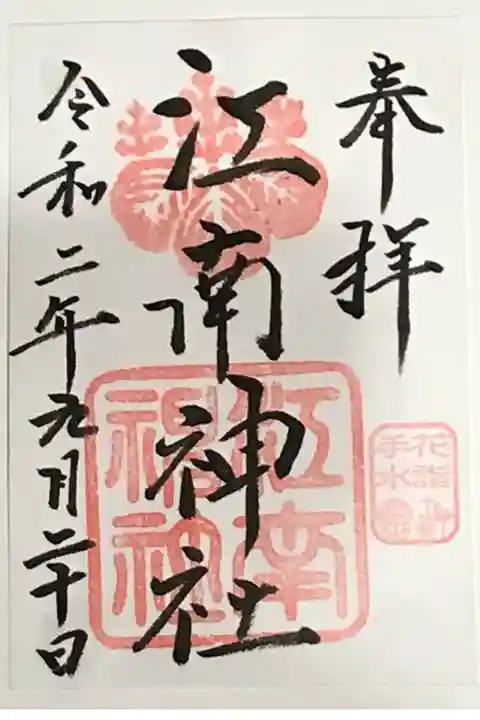 奉拝
江南神社
令和二年九月二十日
江南
花詣
手水